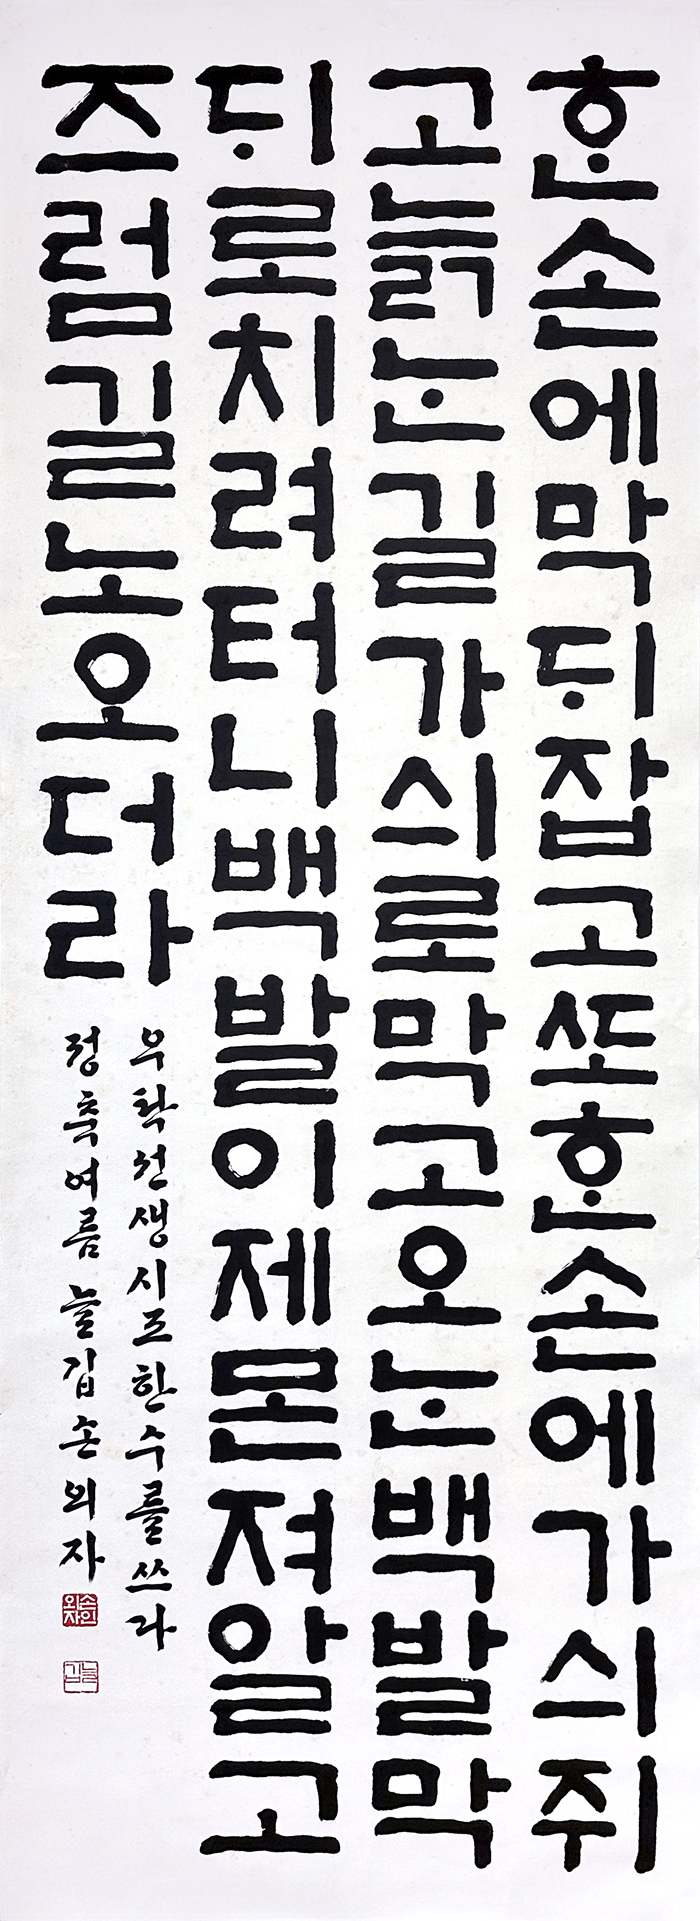 ᄒᆞᆫ손에막ᄃᆡ잡고ᄯᅩᄒᆞᆫ손에가싀쥐
고늙ᄂᆞᆫ길가싀로막고오ᄂᆞᆫ백발막
ᄃᆡ로치려터니백발이제몬져알고
즈럼길노오더라
우탁선생시조한수를쓰다
정축여름 늘깁 손외자
손외자인
늘깁